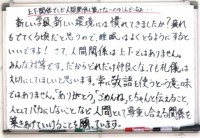 上下関係でも人間関係は築けない
新しい学級、新しい環境には慣れてきましたか？疲れ
もでてくる頃だと思うので、睡眠はよくとるようにすると
いいですよ！さて、人間関係は上下ではありません。
みんな対等です。だからどれだけ仲良くなっても礼儀は
大切にしてほしいと思います。常に敬語を使うという意味
ではありません。「ありがとう」「ごめんね」もちゃんと伝えること、
人としてバカにしないことなど人間として尊重し合える関係を
築きあげていうことを願っています。